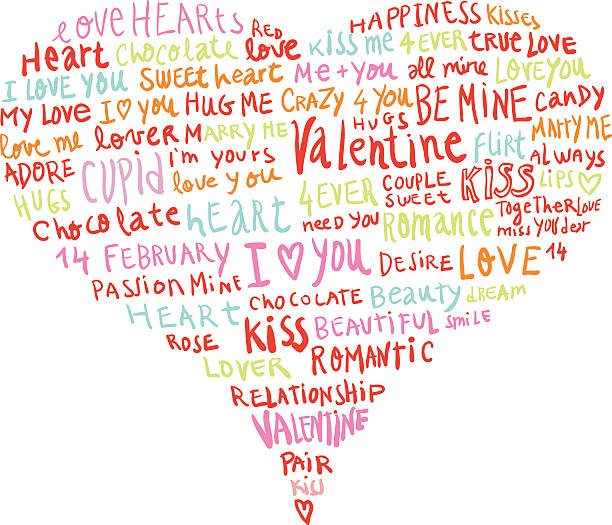 love HEARTS RED HAPPINESS Kisses
Heart chocolate love kiss me 4EVER true LOVE
I LOVE YOU SWEET heart Me + you all mine LOVE you
My LOVE I ♡ you HUG ME CRAZY 4 YOU BE MINE candy
love me lover MARRY ME HUGS Valentine FLIRT MARRY ME
ADORE CUPid I'm yours love you 4EVER COUPLE SWEET KISS ALWAYS LIPS ♡
HUGS chocolate hEART need you ROMANCE TogetherLOVE miss you dear
14 FEBRUARY I ♡ you DESIRE LOVE 14
PASSION MINE CHOCOLATE Beauty dREAM
HEART KISS BEAUTIFUL SMiLE
ROSE LOVER ROMANTIC
RELATIONSHIP
VALENTINE
PAIR
Kiss
♡